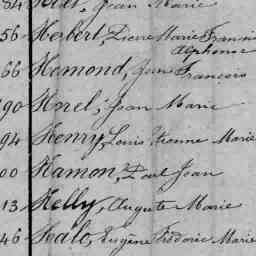 84 Huet, Jean Marie
56 Herbert, Pierre Marie Francis
Alphonse
66 Hemond, Jean François
90 Horel, Jean Marie
94 Henry, Louis Etienne Marie
00 Hamon, Paul Jean
13 Helly, Auguste Marie
46 Halo, Eugène Frédéric Marie